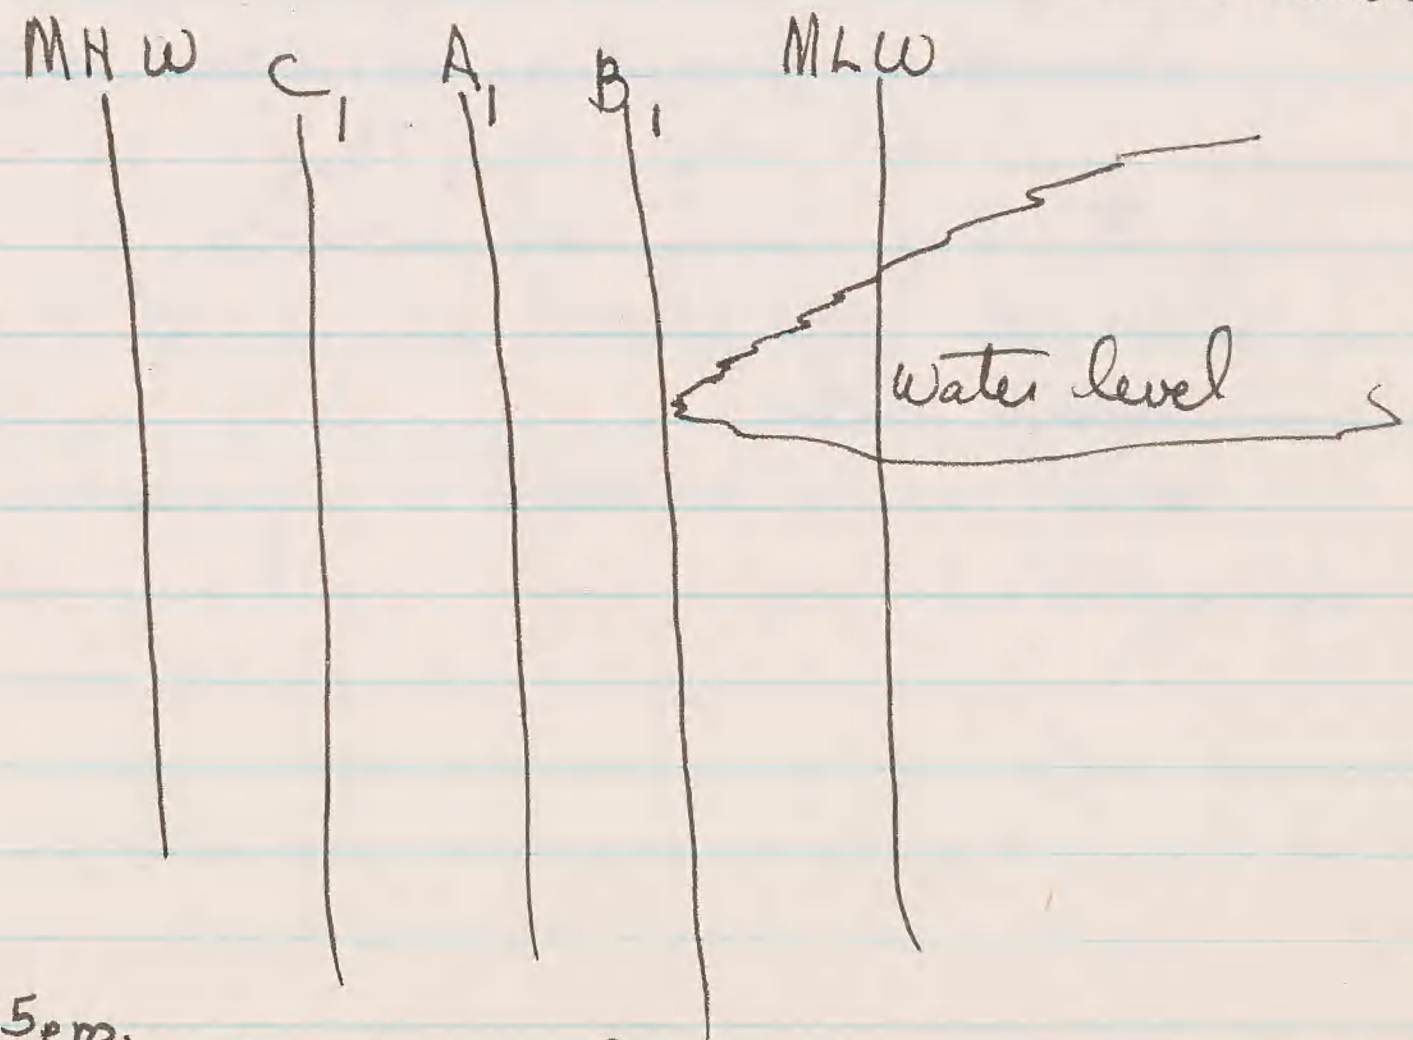 MHW C1 A1 B1 MLW
Water level